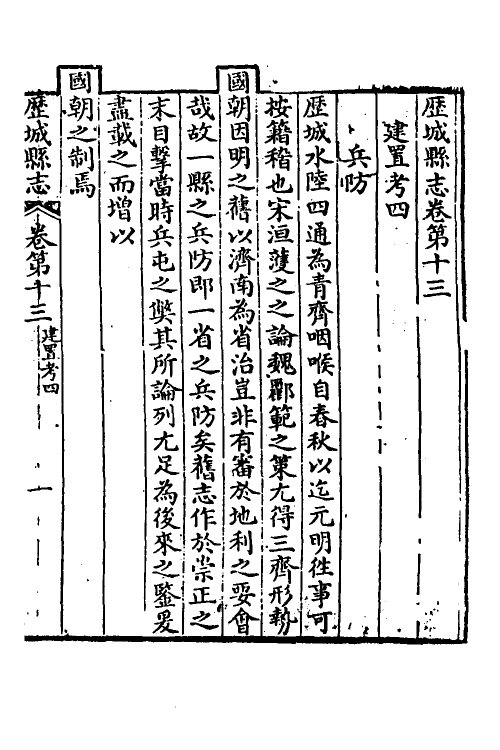 歷城縣志卷第十三
建置考四
兵防
歷城水陸四通為青齊咽喉自春秋以迄元明徃事可
按籍稽也宋洹薩之之論魏酈範之策尤得三齊形勢
國朝因明之舊以濟南為省治豈非有審於地利之要會
哉故一縣之兵防即一省之兵防矣舊志作於崇正之
末目擊當時兵屯之獘其所論列尤足為後來之鑒爰
盡載之而增以
國朝之制焉
歷城縣志 卷第十三 建置考四 一